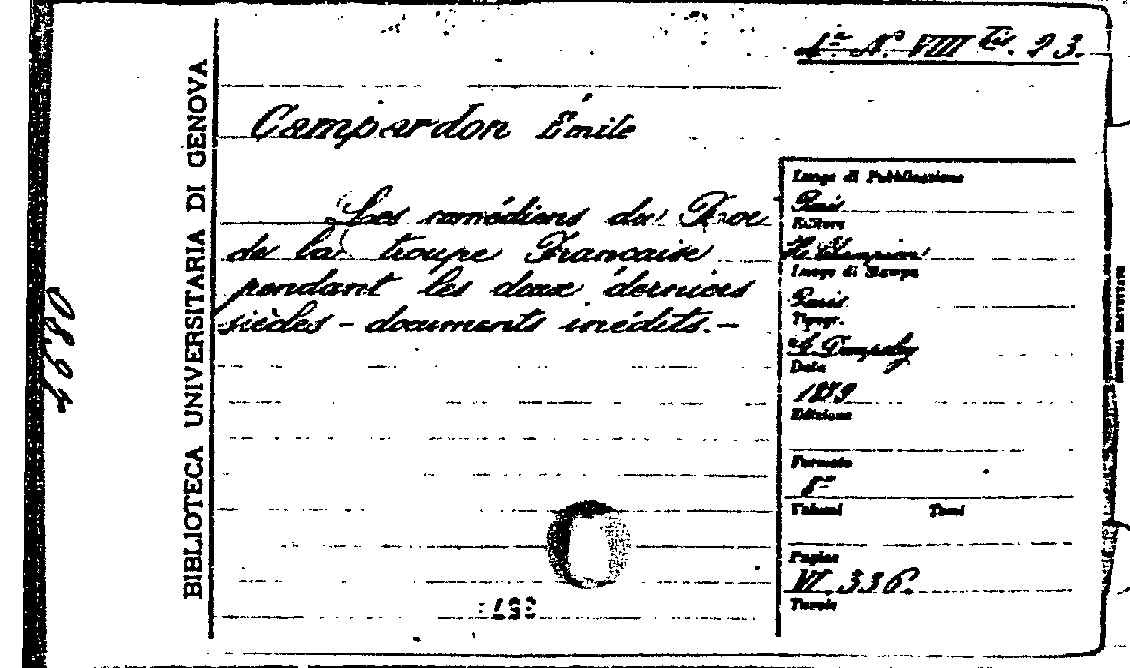 4ª N. VIII Tis. 23.
BIBLIOTECA UNIVERSITARIA DI GENOVA
Campardon Émile
Les comédiens du Roi
de la troupe Française
pendant les deux derniers
siècles - documents inédits. -
Luogo di Pubblicazione
Paris
Editore
H. Champion
Luogo di Stampa
Paris
Tipogr.
Data
1879
Edizione
Formato
8º
Volumi Tomi
Pagine
VI. 336.
Tavole
4680